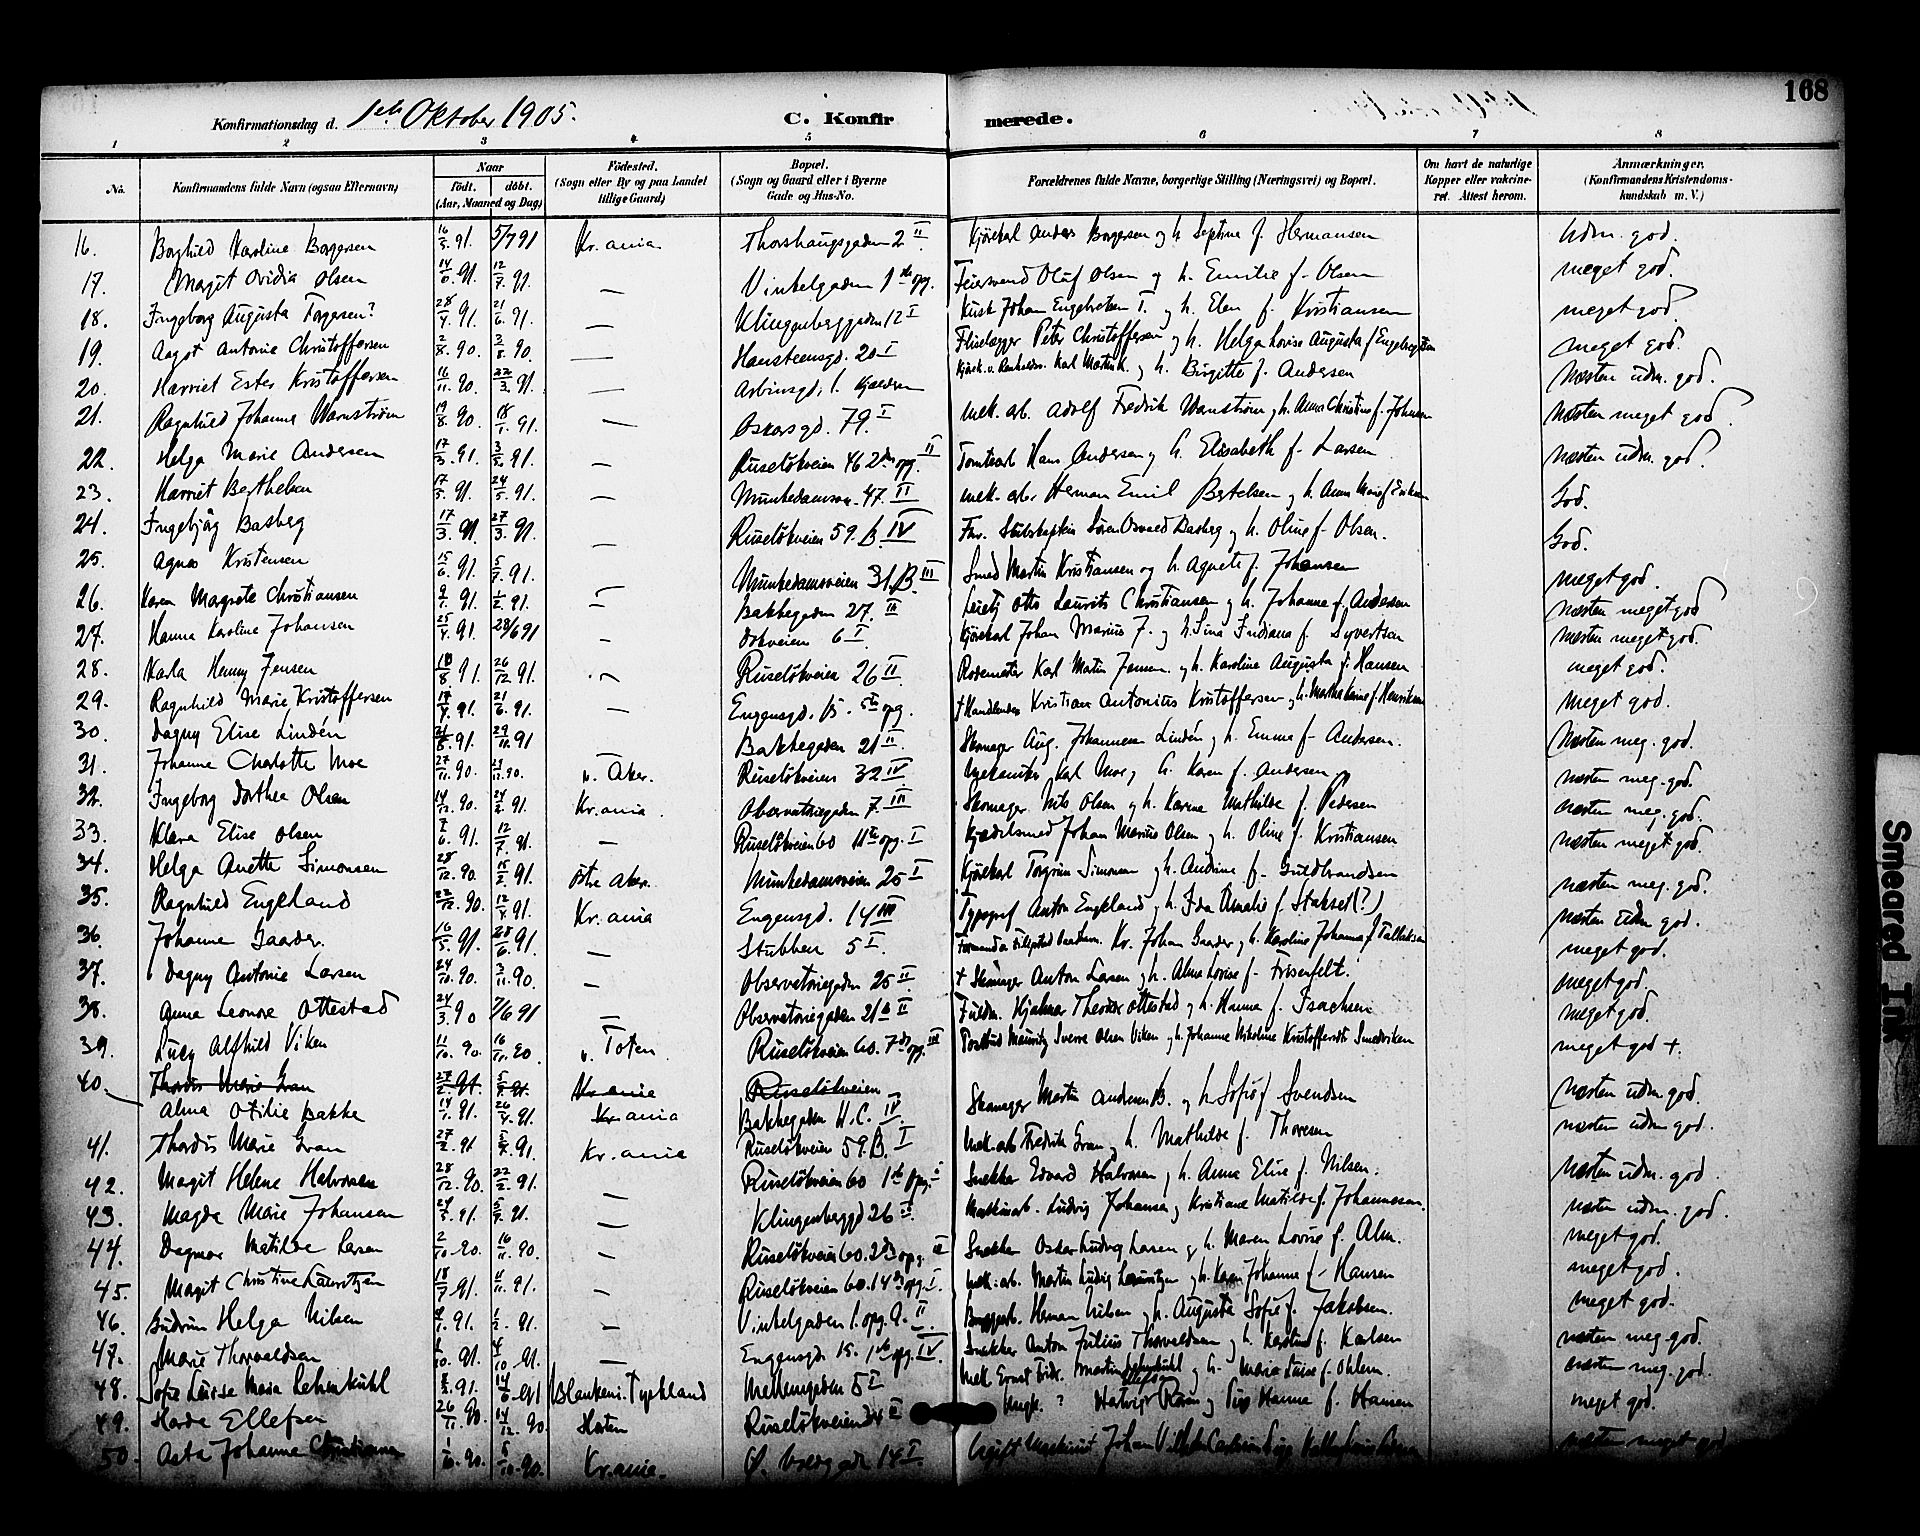 168
Konfirmationsdag d. 1ste Oktober 1905.
C. Konfirmerede.
1 2 3 4 5 6 7 8
No. Konfirmandens fulde Navn (ogsaa Efternavn) Naar født. døbt. (Aar, Maaned og Dag) Födested. (Sogn eller By og paa Landet tillige Gaard) Bopæl. (Sogn og Gaard eller i Byerne Gade og Hus-No. Forældrenes fulde Navne, borgerlige Stilling (Næringsvei) og Bopæl. Om havt de naturlige Kopper eller vakcineret. Attest herom. Anmærkninger. (Konfirmandens Kristendomskundskab m. V.)
16. Borghild Karoline Borgersen 16/5 91. 5/7 91 Kr.ania Thorshaugsgaden 2 II Kjørekarl Anders Borgersen og h. Septine f. Hermansen Udm. god.
17. Margit Ovidia Olsen 91. 12/7 91. — Vinkelgaden 1ste opg. Feiersvend Oluf Olsen og h. Emilie f. Olsen meget god.
18. Ingeborg Augusta 28/4 91. 21/6 91. — Klingenberggaden 12 I Kusk Johan Engebretsen T. og h. Elen f. Kristiansen meget god.
19. Aagot Antonie Christoffersen 90. 90. — Hansteensgd. 20 I Peter Christoffersen og h. Helga Lovise Augusta f. meget god.
20. Harriet Ester Kristoffersen 16/11 90. 22/3 91. — Arbinsgd. 1. Kjælderen Karl Martin K. og h. Birgitte f. Andersen Næsten udm. god.
21. Ragnhild Johanne Wanström 19/8 90. 18/1 91. — Oscarsgd. 79. I Mek. arb. Adolf Fredrik Wanström og h. Anna Christine f. Johnsen Næsten meget god
22. Helga Marie Andersen 17/3 91. 91. — Ruselökveien 46 2den opg. II Tomtearb Hans Andersen og h. Elisabeth f. Larsen Næsten udm. god.
23. Harriet Berthelsen 17/3. 91. 24/5. 91. — Munkedamsv. 47. II Mek. arb. Herman Emil Bertelsen og h. Anna Marie f. God.
24. Ingebjörg Basberg 17/3. 91. 27/3. 91. — Ruselökveien 59. B. IV Fhv. Skibskaptein Sören Osvald Basberg og h. Oline f. Olsen. God.
25. Agnes Kristensen 15/6 91. 5/7. 91. — Munkedamsveien 31.B III Smed Martin Kristiansen og h. Agnete f. Johansen meget god.
26. Karen Magrete Christiansen 91. 91. — Bakkegaden 27. III Otto Laurits Christiansen og h. Johanne f. Andersen næsten meget god
27. Hanna Karoline Johansen 25/4. 91. 28/6 91 — Dokveien 6 I. Kjørekarl Johan Marius J. og h. Lina Indiana f. Syvertsen næsten meget god.
28. Karla Henny Jensen 91. 26/12 91. — Ruselökveien 26 II Rodemester Karl Martin Jensen og h. Karoline Augusta f. Hansen meget god.
29. Ragnhild Marie Kristoffersen 91. 21/6. 91. — Engensgd. 15. 5te opg. † Handlende Kristian Antonius Kristoffersen og h. Martha Karine f. Henriksen meget god.
30. Dagny Elise Lindén 91. 29/11. 91 — Bakkegaden 21 II Skomager Aug. Johannesen Lindén og h. Emma f. Andersen. Næsten meg. god.
31. Johanne Charlotte Moe 27/11. 90. 90. v. Aker. Ruselökveien 32 IV Mekaniker Karl Moe og h. Karen f. Andersen næsten meg. god.
32. Ingeborg Dorthea Olsen 14/12. 90. 24/2. 91. Kr.ania Observatoriegaden 7. III Skomager Nils Olsen og h. Karine Mathilde f. Pedersen næsten meg. god.
33. Klara Elise Olsen 7/6. 91. 12/7. 91. — Ruselökveien 60 11te opg. I Kjædelsmed Johan Marius Olsen og h. Oline f. Kristiansen næsten meget god.
34. Helga Anette Simonsen 28/12. 90. 15/2. 91. Östre Aker. Munkedamsveien 25 I Kjørekarl Torgrim Simonsen og h. Andrine f. Guldbrandsen næsten meg. god.
35. Ragnhild Engeland 22/12. 90. 12/4 91. Kr.ania Engensgd. 14 III Typograf Anton Engeland og h. Ida Amalie f. Stakset(?) næsten udm. god.
36. Johanne Gaarder. 16/5. 91. 28/6. 91. — Stubben 5 I. Kr. Johan Gaarder og h. Karoline Johanne f. meget god.
37. Dagny Antonie Larsen 24/10. 90. 3/11. 90. — Observatoriegaden 25 II † Skomager Anton Larsen og h. Alma Lovise f. Frisenfelt. meget god.
38. Anna Leonore Ottestad 24/3. 90 7/6 91 — Observatoriegaden 21 a II Fuldm. Hjalmar Theodor Ottestad og h. Hanna f. Isachsen meget god.
39. Lucy Alfhild Viken 11/10. 90. 16/11. 90 v. Toten. Ruselökveien 60. 7de opg. III Postbud Mauritz Sverre Olsen Viken og h. Johanne Nikoline Kristoffersdt. Smedviken meget god +.
40. Thordis Marie Gran 27/2. 91. 5/4. 91. Kr.ania Ruselökveien
Alma Otilie Bakke 14/1. 91. 26/4. 91. Kr.ania Bakkegaden 11. C. IV. Skomager Martin Andersen B. og h. Sofie f. Svendsen næsten udm. god.
41. Thordis Marie Gran 27/2. 91 5/4. 91. Kr.ania Ruselökveien 59.B. I Mek. arb. Fredrik Gran og h. Mathilde f. Thoresen næsten udm god.
42. Margit Helene Halvorsen 28/12. 90. 22/2. 91. — Ruselökveien 60 1ste opg. I Snekker Edvard Halvorsen og h. Anna Elise f. Nilsen. Næsten udm. god
43. Magda Marie Johansen 24/5. 91. 91. — Klingenberggd 26 II Maskinarb. Ludvig Johansen og Kristiane Matilde f. Johannessen. næsten udm. god.
44. Dagmar Matilde Larsen 2/10. 90. 16/11. 90. — Ruselökveien 60. opg. II Snekker Oskar Ludvig Larsen og h. Maren Lovise f. Alm. meget god.
45. Margit Christine Lauritzen 18/7 91. 11. 91. — Ruselökveien 60. 14de opg. I. Mek. arb. Martin Ludvig Lauritzen og h. Karen Johanne f. Hansen meget god.
46. Gudrun Helga Nilsen 91. 1/2. 91. — Vinkelgaden 1. opg. 9. II Herman Nilsen og h. Augusta Sofie f. Jakobsen. meget god.
47. Marie Thorvaldsen 10. 91. 4/10 91. — Engensgd. 15. 1ste opg. IV. Snekker Anton Julius Thorvaldsen og h. Karoline f. Karlsen næsten meg. god.
48. Sofie Luisse Maria Lehmkuhl 91. 14 91 Blankeni. Tyskland Mellemgaden 5 I Mek Ernst Fridr. Martin Lehmkuhl og h. Maria Luise f. Ohlern. næsten meg. god.
49. Harda Ellefsen 26/11. 90. 14/12. 90 Horten Ruselökveien II Ungk. ? og Pige Hanna f. Hansen meget god.
50. Asta Johanne Christiansen 90. 5/10. 90. Kr.ania. Ø. Voldgade 14 I Ugift Maskinist Johan næsten meget god
Smeared Ink